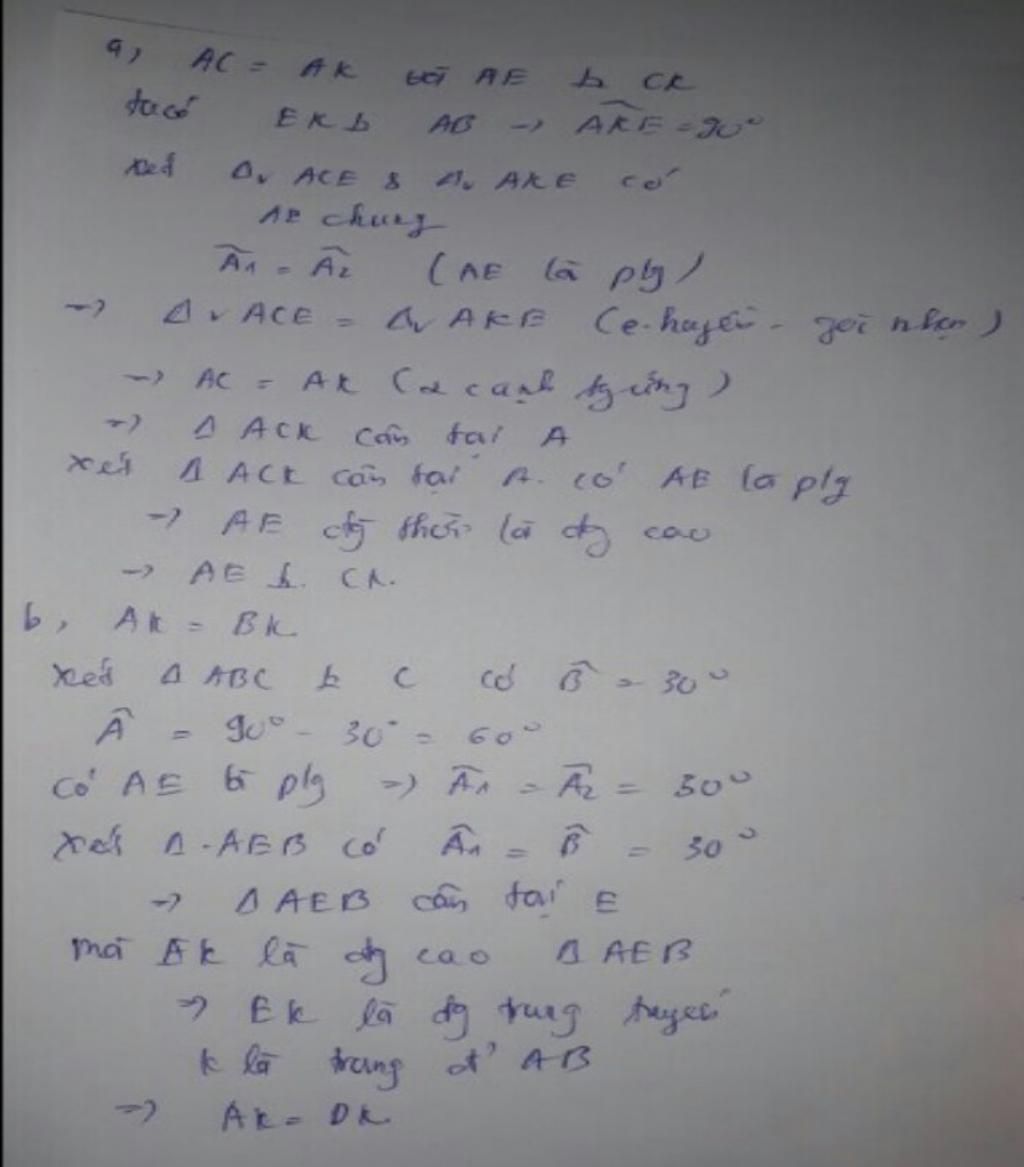 a, AC = AK với AE ⊥ CK
ta có EK ⊥ AB → \widehat{AKE} = 90°
xét Δv ACE & Δv AKE có
AE chung
Â1 = Â2 (AE là p/g)
→ Δv ACE = Δv AKE (c.huyền - góc nhọn)
→ AC = AK (2 cạnh tg ứng)
→ Δ ACK cân tại A
xét Δ ACK cân tại A. có AE là p/g
→ AE đg thời là đg cao
→ AE ⊥ CK.
b, AK = BK
xét Δ ABC ⊥ C có B̂ = 30°
Â = 90° - 30° = 60°
có AE là p/g → Â1 = Â2 = 30°
xét Δ AEB có Â1 = B̂ = 30°
→ Δ AEB cân tại E
mà EK là đg cao Δ AEB
→ EK là đg trung tuyến
K là trung đ' AB
→ AK = BK